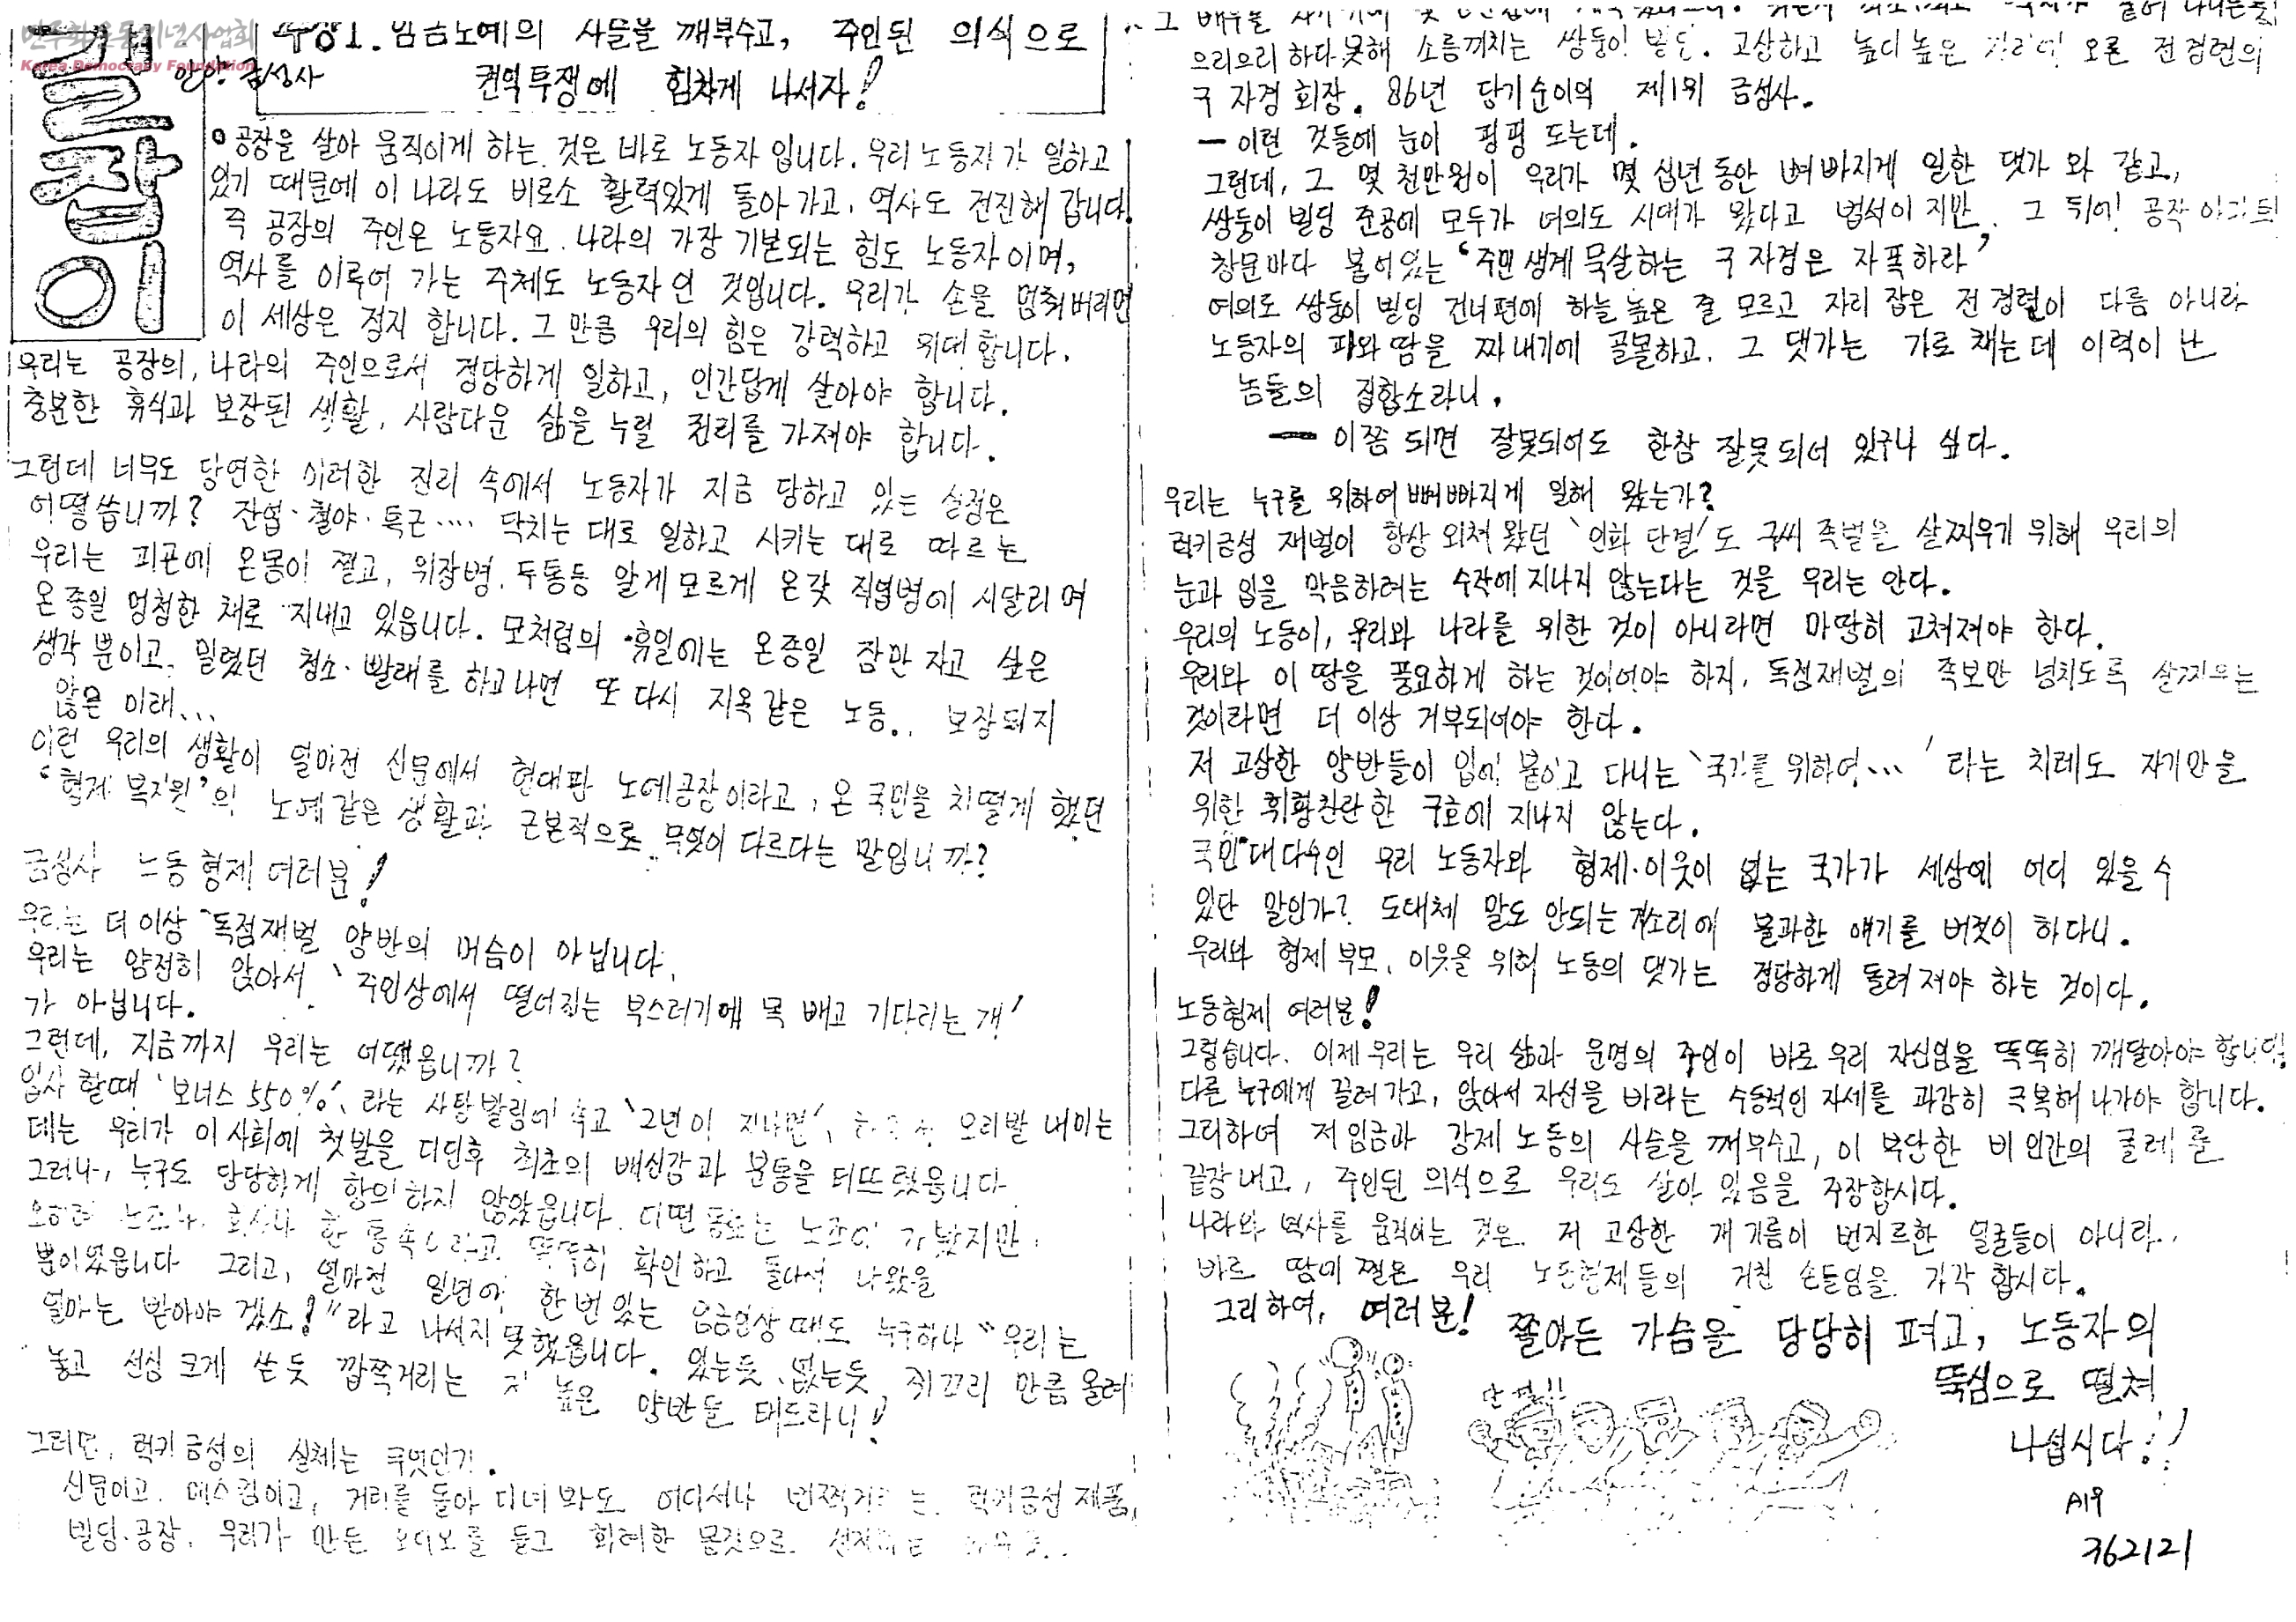 민주화운동기념사업회
Korea Democracy Foundation
길잡이
안양 금성사
주장 1. 임금노예의 사슬을 깨부수고, 주인된 의식으로
권익투쟁에 힘차게 나서자!
공장을 살아 움직이게 하는 것은 바로 노동자 입니다. 우리 노동자가 일하고
있기 때문에 이 나라도 비로소 활력있게 돌아 가고, 역사도 전진해 갑니다.
즉 공장의 주인은 노동자요. 나라의 가장 기본되는 힘도 노동자 이며,
역사를 이루어 가는 주체도 노동자 인 것입니다. 우리가 손을 멈춰버리면
이 세상은 정지 합니다. 그 만큼 우리의 힘은 강력하고 위대합니다.
우리는 공장의, 나라의 주인으로서 정당하게 일하고, 인간답게 살아야 합니다.
충분한 휴식과 보장된 생활, 사람다운 삶을 누릴 권리를 가져야 합니다.
그런데 너무도 당연한 이러한 진리 속에서 노동자가 지금 당하고 있는 실정은
어떻습니까? 잔업·철야·특근···· 닥치는 대로 일하고 시키는 대로 따르는
우리는 피곤에 온몸이 쩔고, 위장병, 두통등 알게모르게 온갖 직업병에 시달리며
온종일 멍청한 채로 지내고 있읍니다. 모처럼의 휴일에는 온종일 잠만 자고 싶은
생각 뿐이고, 밀렸던 청소·빨래를 하고나면 또 다시 지옥같은 노동.. 보장되지
않은 미래...
이런 우리의 생활이 얼마전 신문에서 현대판 노예공장이라고, 온 국민을 치떨게 했던
'형제 복지원'의 노예같은 생활과 근본적으로 무엇이 다르다는 말입니까?
금성사 노동형제 여러분!
우리는 더 이상 독점재벌 양반의 머슴이 아닙니다.
우리는 얌전히 앉아서 '주인상에서 떨어지는 부스러기에 목 빼고 기다리는 개'
가 아닙니다.
그런데, 지금까지 우리는 어땠읍니까?
입사 할때 '보너스 550%', 라는 사탕발림에 속고 '2년이 지나면', 오리발 내미는
데는 우리가 이 사회에 첫발을 디딘후 최초의 배신감과 분통을 터뜨렸읍니다
그러나, 누구도 당당하게 항의하지 않았읍니다. 어떤 동료는 노조에 가봤지만
오히려 한통속이라고 똑똑히 확인하고 돌아서 나왔을
뿐이었읍니다 그리고, 얼마전 일년에 한번있는 임금인상 때도 누구하나 "우리는
얼마는 받아야 겠소!"라고 나서지 못했읍니다. 있는듯, 없는듯, 쥐꼬리 만큼 올려
놓고 선심 크게 쓴듯 깝쭉거리는 저 높은 양반들 태도라니!
그러면, 럭키금성의 실체는 무엇인가.
신문이고, 매스컴이고, 거리를 돌아 다녀봐도 어디서나 번쩍거리는 럭키금성 제품,
빌딩·공장. 우리가 만든 오디오를 들고 화려한 몸짓으로
그 배우를
으리으리 하다 못해 소름끼치는 쌍둥이 빌딩. 고상하고 높디높은 자리에 오른 전경련의
구 자경 회장. 86년 당기순이익 제1위 금성사.
— 이런 것들에 눈이 핑핑 도는데.
그런데, 그 몇 천만원이 우리가 몇 십년 동안 뼈 빠지게 일한 댓가 와 같고,
쌍둥이 빌딩 준공에 모두가 여의도 시대가 왔다고 법석이지만, 그 뒤에
창문마다 붙어있는 '주민 생계 묵살하는 구 자경은 자폭하라'
여의도 쌍둥이 빌딩 건너편에 하늘 높은 줄 모르고 자리 잡은 전경련이 다름 아니라
노동자의 피와 땀을 짜내기에 골몰하고, 그 댓가는 가로 채는데 이력이 난
놈들의 집합소라니.
— 이쯤 되면 잘못되어도 한참 잘못되어 있구나 싶다.
우리는 누구를 위하여 뼈빠지게 일해 왔는가?
럭키금성 재벌이 항상 외쳐 왔던 '인화 단결'도 구씨 족벌을 살찌우기 위해 우리의
눈과 입을 막음하려는 수작에 지나지 않는다는 것을 우리는 안다.
우리의 노동이, 우리와 나라를 위한 것이 아니라면 마땅히 고쳐져야 한다.
우리와 이 땅을 풍요하게 하는 것이어야 하지, 독점재벌의 족보만 넘치도록 살찌우는
것이라면 더 이상 거부되어야 한다.
저 고상한 양반들이 입에 붙이고 다니는 '국가를 위하여...' 라는 치레도 자기만을
위한 휘황찬란한 구호에 지나지 않는다.
국민 대다수인 우리 노동자와 형제·이웃이 없는 국가가 세상에 어디 있을 수
있단 말인가? 도대체 말도 안되는 개소리에 불과한 얘기를 버젓이 하다니.
우리와 형제 부모, 이웃을 위해 노동의 댓가는 정당하게 돌려져야 하는 것이다.
노동형제 여러분!
그렇습니다. 이제 우리는 우리 삶과 운명의 주인이 바로 우리 자신임을 똑똑히 깨달아야 합니다.
다른 누구에게 끌려가고, 앉아서 자선을 바라는 수동적인 자세를 과감히 극복해 나가야 합니다.
그리하여 저임금과 강제 노동의 사슬을 깨부수고, 이 부단한 비인간의 굴레를
끝장내고, 주인된 의식으로 우리도 살아 있음을 주장합시다.
나라와 역사를 움직이는 것은 저 고상한 개기름이 번지르한 얼굴들이 아니라,
바로 땀에 쩔은 우리 노동형제들의 거친 손들임을 자각합시다.
그리하여, 여러분! 쫄아든 가슴을 당당히 펴고, 노동자의
뚝심으로 떨쳐
나섭시다!!
단결!!
A19
362121